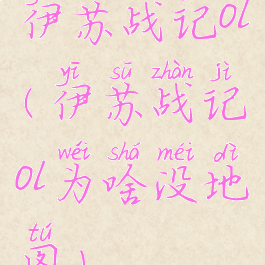 伊苏战记ol
yī sū zhàn jì
(伊苏战记
wéi shá méi dì
ol为啥没地
tú
图)